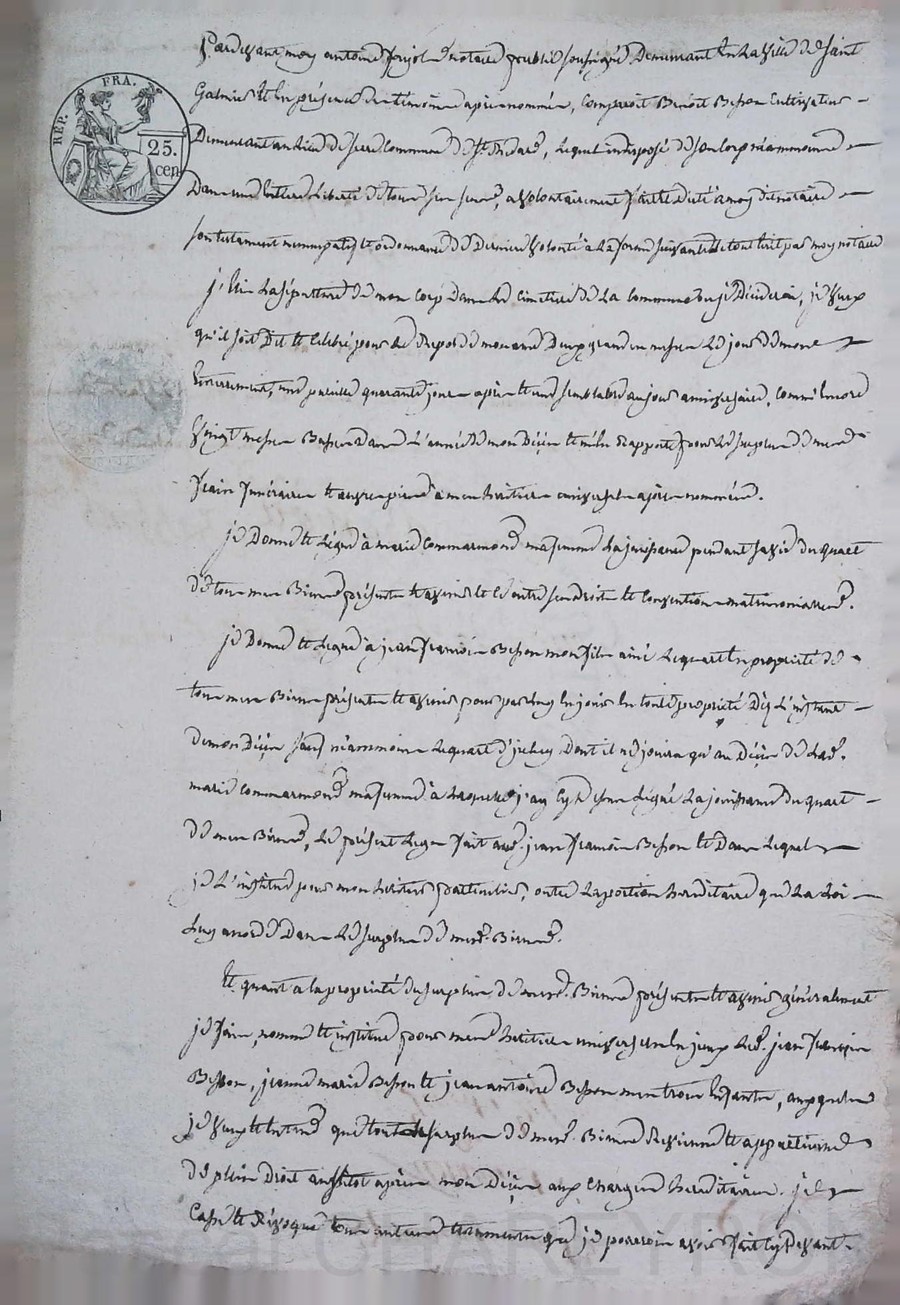 Pardevant moy antoine notaire public soussigné Demeurant En La Ville de Saint
Galmier Et En présence des témoins apres nommés, Comparoit Benoit Besson Cultivateur
Demeurant au Lieu de Commune de st , Lequel indisposé de son Corp néammoins
Dans une Entiere Liberté de tous ses sens, a volontairement fait et Dicté a moy dit notaire
son testament nuncupatif et ordonnance de Derniere volonté a La forme suivante Et tout Ecrit par moy notaire
j'Elis La sépulture de mon Corp Dans Le Cimetiere de La Commune ou je Déciderai, je veux
qu'il soit Dit et Célébré pour Le Repos de mon ame Deux grandes messes Le jour de mon
Enterrement, une pareille quarante jours après et une semblable au jour anniversaire, comme Encore
Vingt messes Basses dans L'année de mon Décès et m'En Rapporte pour Le surplus de mes
frais funéraires et œuvres pies a mes héritiers universels après nommés.
je Donne et Lègue à marie Commarmond ma femme La jouissance pendant sa vie du quart
de tous mes Biens présents et avenir et Ce outre ses Droits et Conventions matrimoniales.
je Donne et Lègue à jean françois Besson mon fils ainé Le quart En propriété de
tous mes Biens présents et avenir pour par Luy En jouir En toute propriété Dès L'instant
de mon Décès sauf néammoins Le quart d'iceluy Dont il ne jouira qu'au Décès de Lad.
marie Commarmond ma femme à Laquelle j'ay Cy Dessus Légué La jouissance du quart
de mes Biens, Le présent Legs fait aud. jean françois Besson et Dans Lequel
je L'institue pour mon héritier particulier, outre La portion héréditaire que La Loi
Luy accorde Dans Le surplus de mes d. Biens.
Et quant a la propriété du surplus de mesd. Biens présents et avenir généralement
je fais, nomme et institue pour mes héritiers universels Ledit jean françois
Besson, jeanne marie Besson et jean antoine Besson mes trois Enfants, auxquels
je veux et Entend que tout Le surplus de mesd. Biens Revienne et appartienne
de plein Droit aussitot après mon Décès aux Charges héréditaires. je
Casse et Révoque tous autres testaments que je pourrois avoir fait Cy Devant.
REP. FRA.
25.
cen